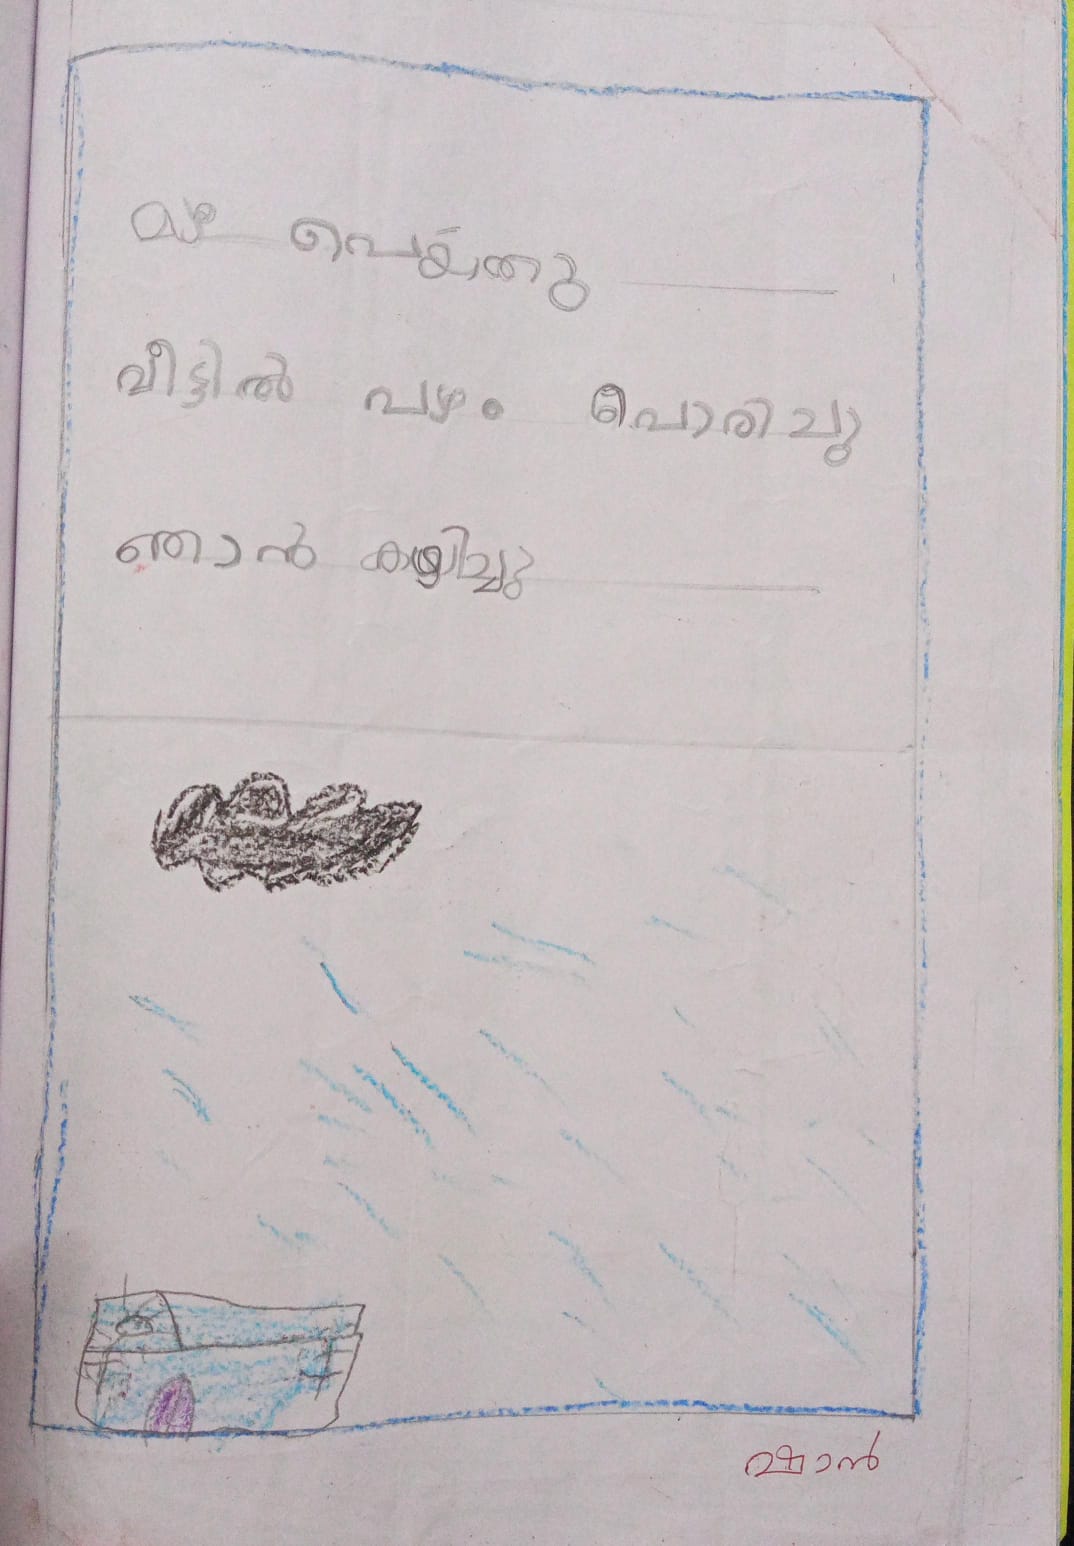 മഴ പെയ്തു
വീട്ടിൽ പഴം പൊരിച്ചു
ഞാൻ കഴിച്ചു
ഷാൻ